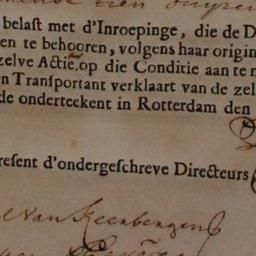 belast met d'Inroepinge, die de D
en te behooren, volgens haar origin
zelve Actiē.op die Conditie aan te n
n Transport ant verklaart van de zel
de onderteekent in Rotterdam den
resent d'ondergeschreve Directeurs
van Keenbergen